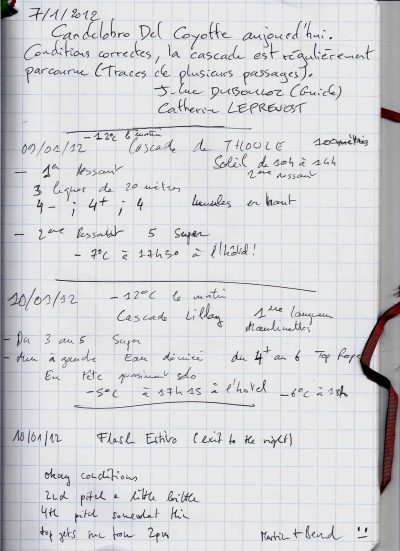 7/1/2012
Candelobro Del Coyotte aujourd'hui.
Conditions correctes, la cascade est régulièrement
parcourue (Traces de plusieurs passages).
J-Luc (Guide)
Catherine LEPREVOST
-12°C le matin
09/01/12 Cascade de THOULE 100 mètres
Soleil de 10h à 14h
2ème ressaut
- 1er Ressaut
3 lignes de 20 mètres
4- ; 4+ ; 4 en haut
- 2ème Ressaut 5 Super
- 7°C à 17h30 à l'hôtel!
10/01/12 -12°C le matin
Cascade Lillaz 1ère longueur
Moulinettes
- Du 3 au 5 Super
- Mur à gauche Eau du 4+ au 6 Top Rope
En tête quasiment solo
-5°C à 17h15 à l'hôtel -6°C à 18h
10/01/12 Flash Estivo (exit to the right)
okay conditions
2nd pitch a little brittle
4th pitch somewhat thin
top gets sun from 2pm
Martin + Bernd